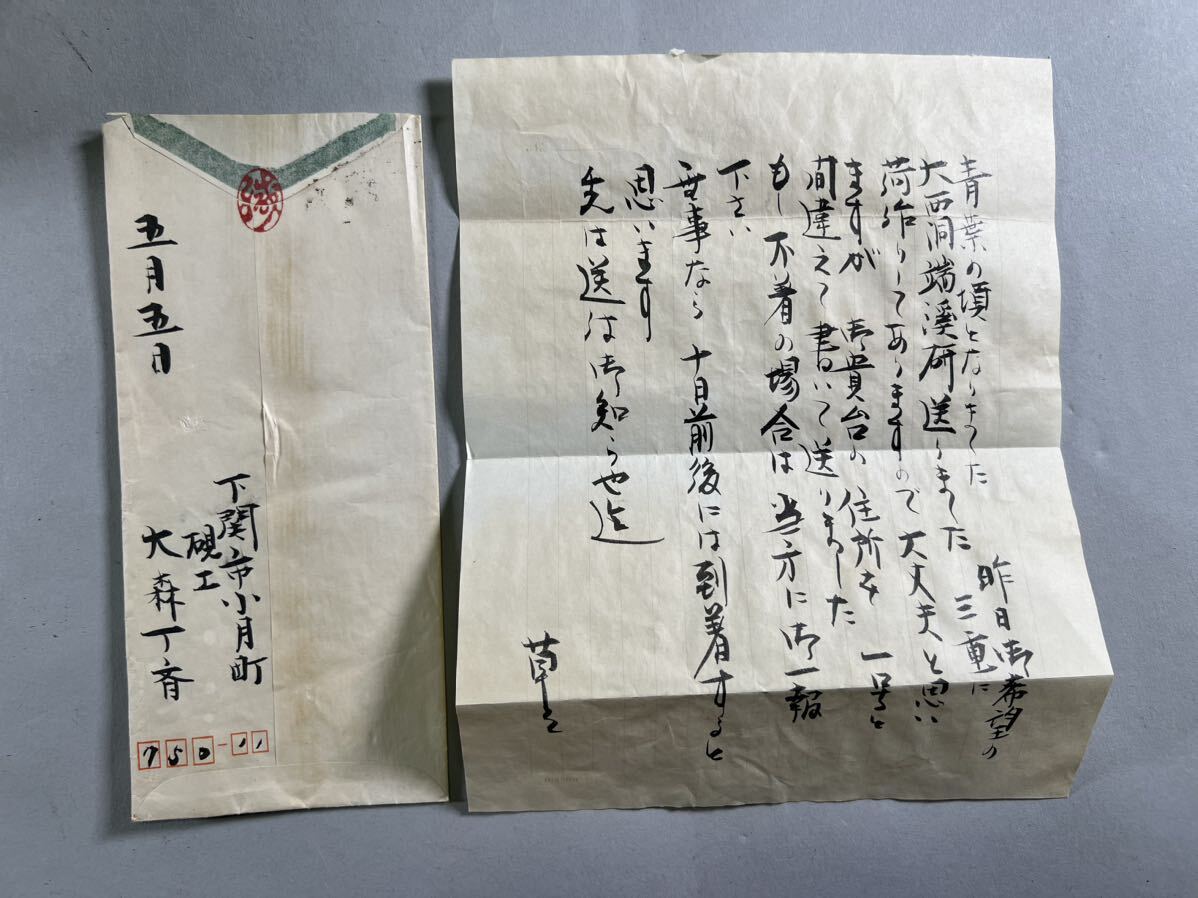 青葉の頃となりました
昨日御希望の
大西洞端溪硯送りました 三重に
荷作りしてありますので大丈夫と思い
ますが 御貴台の住所を 一号と
間違えて書いて送りました
もし不着の場合は 当方に御一報
下さい
無事なら 十日前後には到着すると
思います
先は送付御知らせ迄
草々
五月五日
下関市小月町
硯工
大森丁斉
750-11